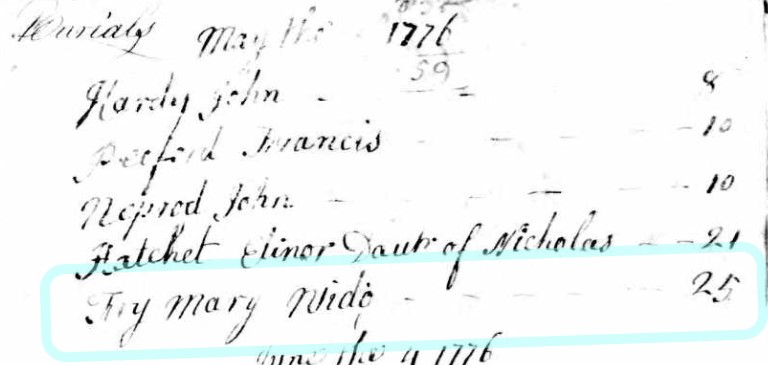 Burials May the 1776
59
Hardy John - 8
Francis - - - 10
John - - - 10
Hatchet Elinor Dautr of Nicholas - - 21
Fry Mary Wido - - - 25
June the 4 1776